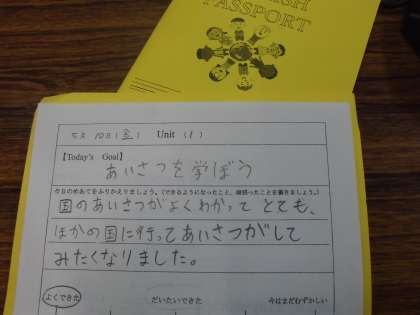 PASSPORT
5月 10日 (金) Unit (1)
【Today's Goal】
あいさつを学ぼう
今日のめあてをふりかえりましょう。(できるようになったこと、頑張ったことを書きましょう。)
国のあいさつがよくわかって とても、
ほかの国に行ってあいさつがして
みたくなりました。
よくできた だいたいできた 今はまだむずかしい